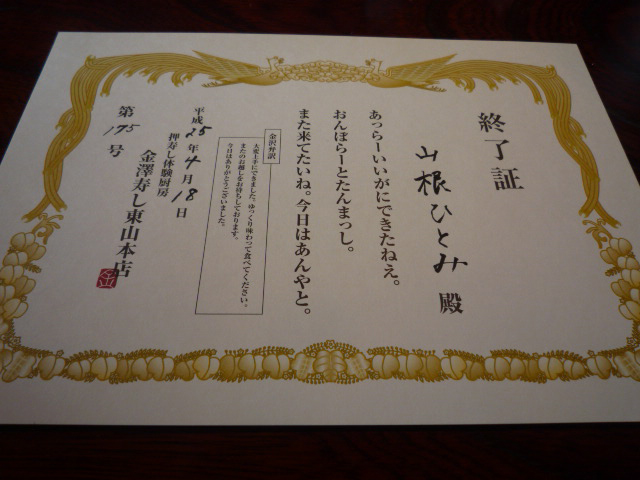 終了証
山根ひとみ 殿
あっらーいいがにできたねえ。
おんぼらーとたんまっし。
また来てたいね。今日はあんやと。
金沢弁訳
大変上手にできました。ゆっくり味わって食べてください。
またのお越しをお待ちしております。
今日はありがとうございました。
平成25年4月18日
押寿し体験厨房
金澤寿し東山本店
第175号